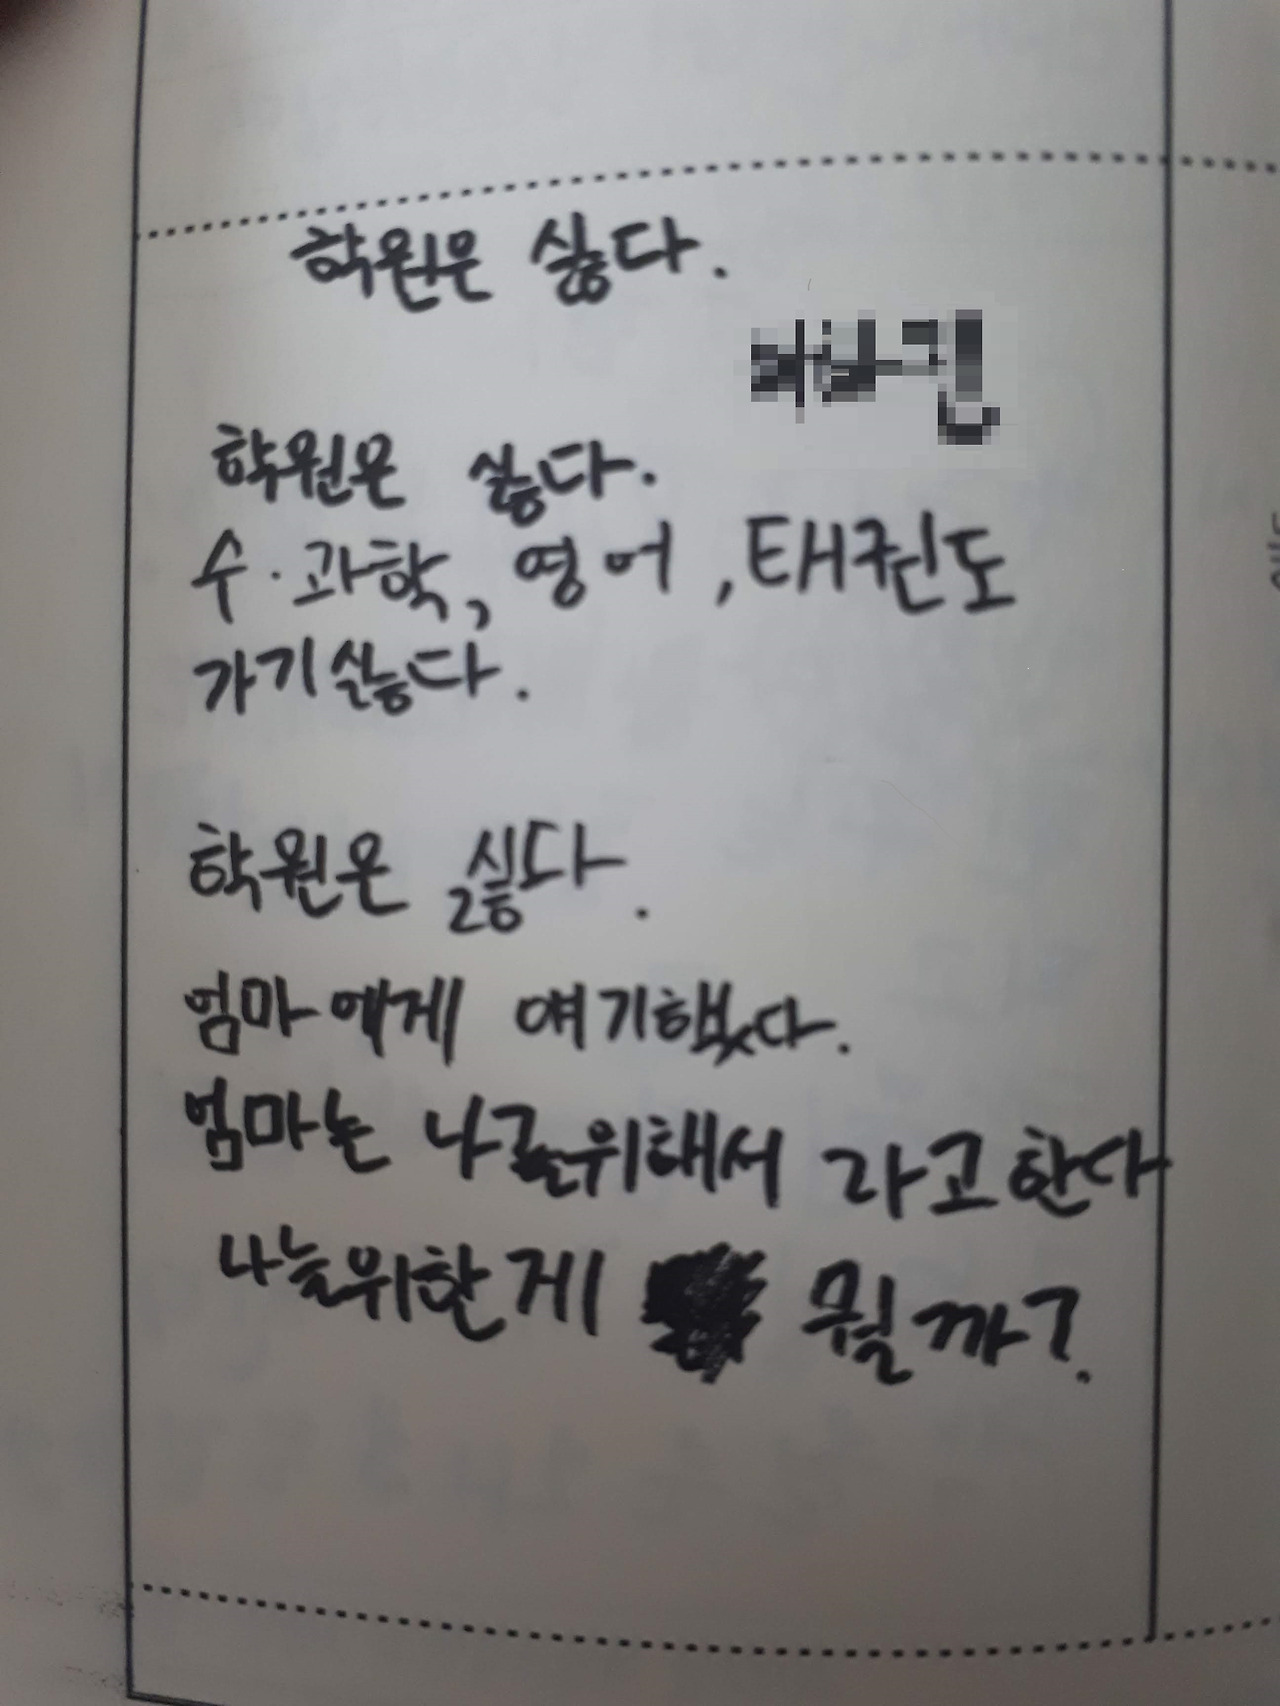 학원은 싫다.
학원은 싫다.
수·과학, 영어, 태권도
가기싫다.
학원은 싫다.
엄마에게 얘기했다.
엄마는 나를위해서 라고한다
나를위한게 뭘까?